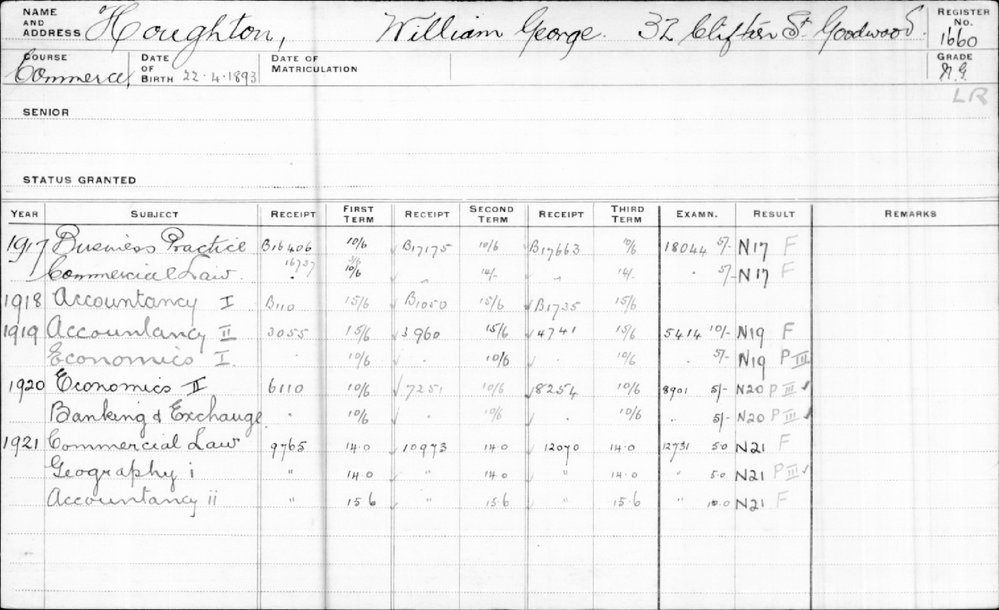 NAME AND ADDRESS Houghton, William George. 32 Clifton St Goodwood. REGISTER No. 1660
COURSE Commerce, DATE OF BIRTH 22.4.1893 DATE OF MATRICULATION GRADE N.G.
LR
SENIOR
STATUS GRANTED
YEAR SUBJECT RECEIPT FIRST TERM RECEIPT SECOND TERM RECEIPT THIRD TERM EXAMN. RESULT REMARKS
1917 Business Practice B16406 10/6 B17175 10/6 B17663 10/6 18044 5/- N17 F
Commercial Law. 16737 10/6 " 14/- " 14/- " 5/- N17 F
1918 Accountancy I B110 15/6 B1050 15/6 B1735 15/6
1919 Accountancy II 3055 15/6 3960 15/6 4741 15/6 5414 10/- N19 F
Economics I. . 10/6 . 10/6 . 10/6 . 5/- N19 P III
1920 Economics II 6110 10/6 7251 10/6 18254 10/6 8901 5/- N20 P III
Banking & Exchange . 10/6 . 10/6 . 10/6 " 5/- N20 P III
1921 Commercial Law 9765 14.0 10973 14.0 12070 14.0 12731 5.0 N21 F
Geography i " 14.0 " 14.0 " 14.0 " 5.0 N21 P III
Accountancy ii " 15.6 " 15.6 " 15.6 " 10.0 N21 F